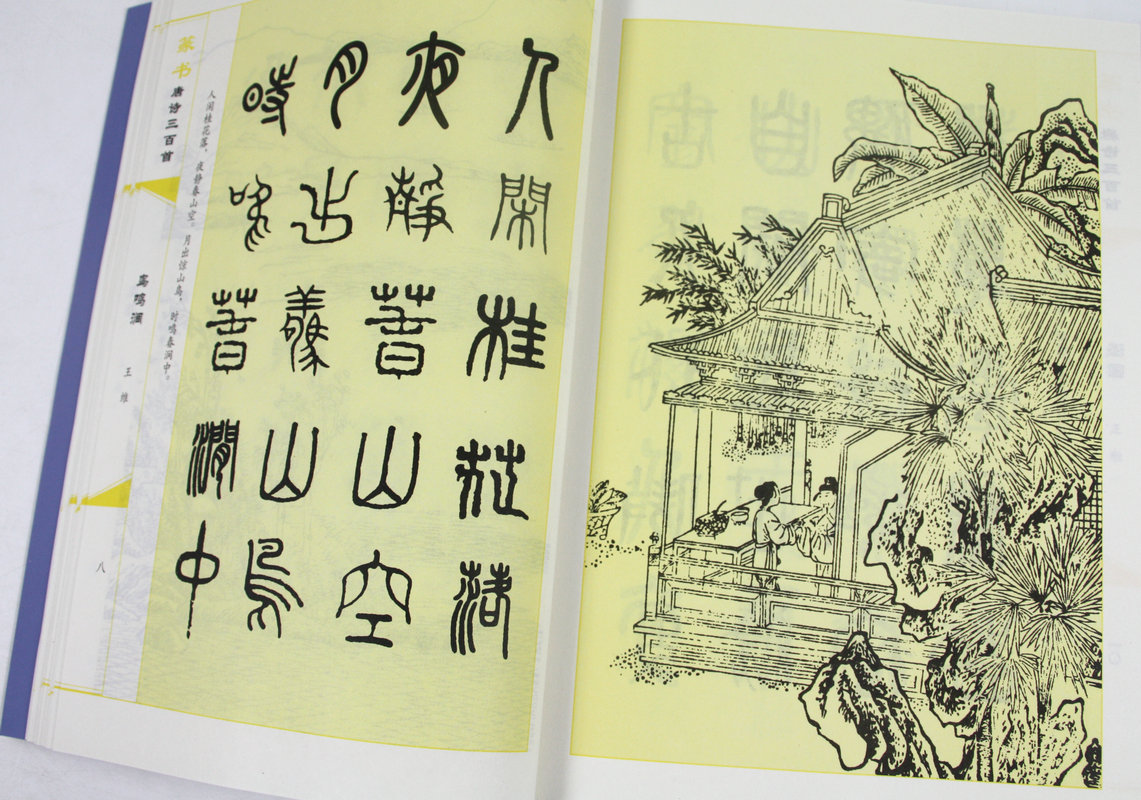 人閑桂花落
夜靜春山空
月出驚山鳥
時鳴春澗中
人闲桂花落，夜静春山空。月出惊山鸟，时鸣春涧中。
篆书唐诗三百首
鸟鸣涧 王维
八